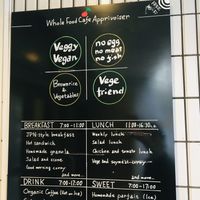 Whole Food Cafe Apprivoiser
Veggy
Vegan
no egg
no meat
no fish
Brownrice
&
Vegetables
Vege
friend
BREAKFAST 7:00-11:00
JPN-style breakfast
Hot sandwich
Homemade granola
Salad and
Good morning curry
and more..
LUNCH 11:00-16:30
Weekly lunch
Salad lunch
Chicken and tomato lunch
Vege and soymeat curry
and more..
DRINK 7:00-17:00
Organic Coffee (Hot or Ice)
SWEET 7:00-17:00
Homemade parfait (Ice)